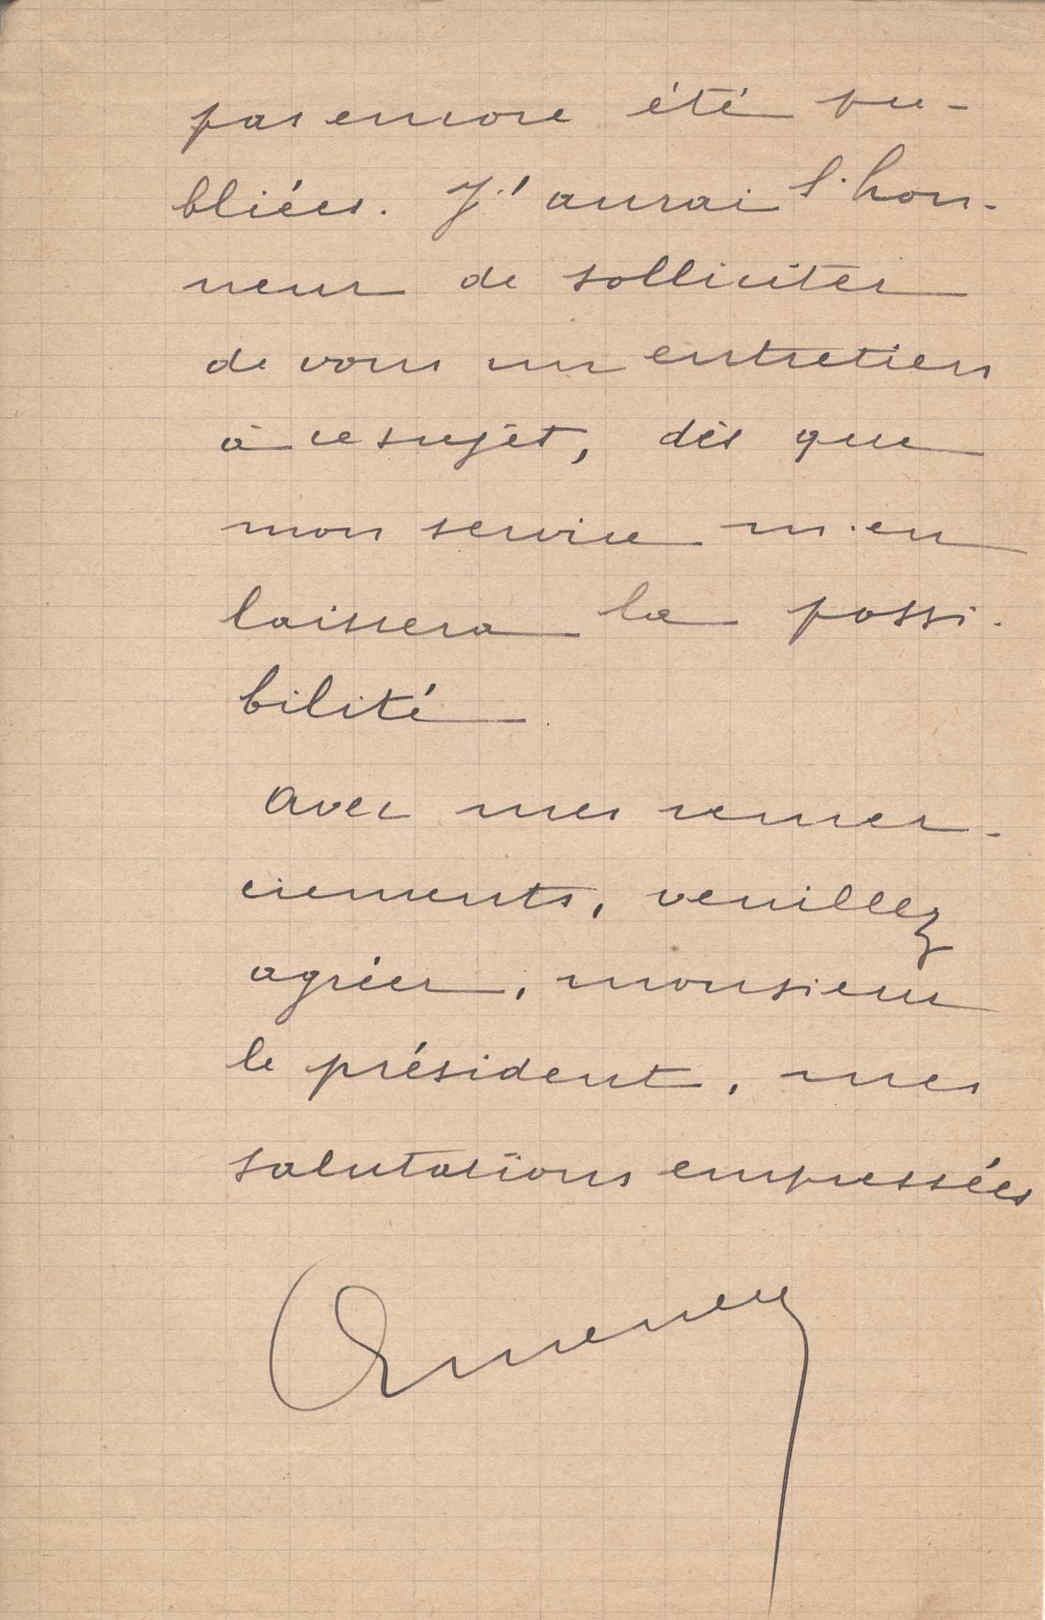 pas encore été pu-
bliées. J'aurai l'hon-
neur de solliciter
de vous un entretien
à ce sujet, dès que
mon service m'en
laissera la possi-
bilité.
Avec mes remer-
ciements, veuillez
agréer, monsieur
le président, mes
salutations empressées